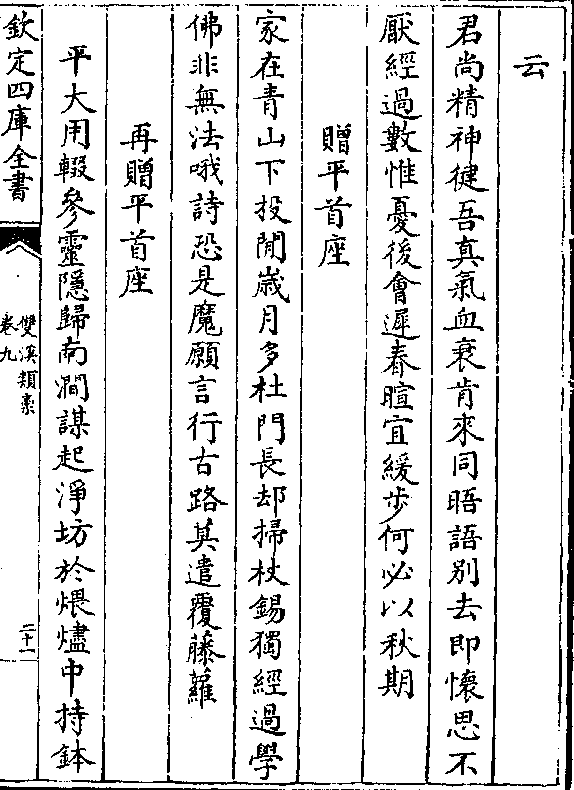 云
君尚精神健吾真氣血衰肯來同晤語別去即懷思不
厭經過數惟憂後會遲春暄宜緩步何必以秋期
贈平首座
家在青山下投閒歳月多杜門長却掃杖錫獨經過學
佛非無法哦詩恐是魔願言行古路莫遣覆藤蘿
再贈平首座
平大用輟參靈隱歸南澗謀起淨坊於煨燼中持鉢
欽定四庫全書
雙溪類稾
卷九
二十一